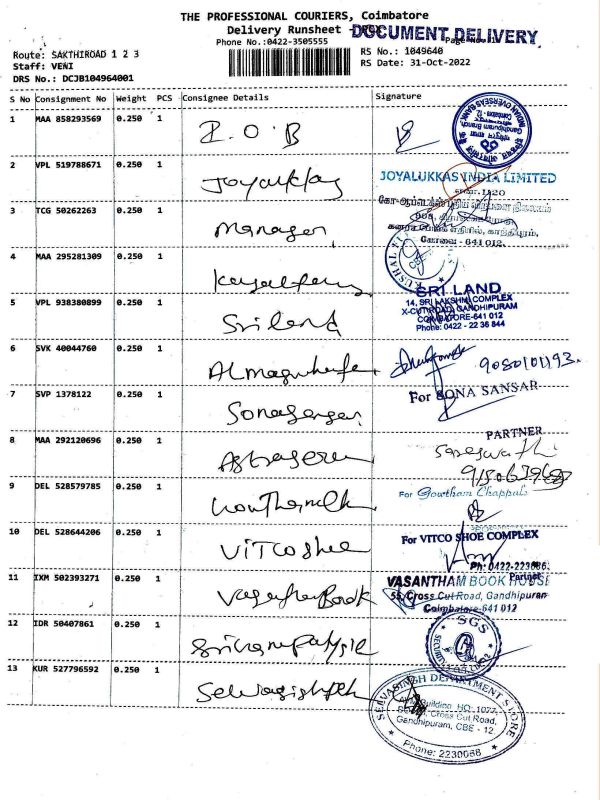 THE PROFESSIONAL COURIERS, Coimbatore
Delivery Runsheet
DOCUMENT DELIVERY
Phone No.:0422-3505555
Route: SAKTHIROAD 1 2 3
Staff: VENI
DRS No.: DCJB104964001
RS No.: 1049640
RS Date: 31-Oct-2022
S No Consignment No Weight PCS Consignee Details Signature
1 MAA 858293569 0.250 1 I.O.B
INDIAN OVERSEAS BANK
Gandhipuram Branch
2 VPL 519788671 0.250 1 Joyalukkas
JOYALUKKAS INDIA LIMITED
3 TCG 50262263 0.250 1 Manager
கோவை - 641 012.
4 MAA 295281309 0.250 1
5 VPL 938380899 0.250 1 Sriland
SRI LAND
14, SRI LAKSHMI COMPLEX
X-CUT ROAD, GANDHIPURAM
COIMBATORE-641 012
Phone: 0422 - 22 36 844
6 SVK 40044760 0.250 1
9080101193.
7 SVP 1378122 0.250 1
For SONA SANSAR
PARTNER
8 MAA 292120696 0.250 1
Saraswathi
9 DEL 528579785 0.250 1
For Gowtham Chappals
10 DEL 528644206 0.250 1 Vitcoshee
For VITCO SHOE COMPLEX
Partner
11 IXM 502393271 0.250 1
Ph: 0422-223686
VASANTHAM BOOK HOUSE
55, Cross Cut Road, Gandhipuram
Coimbatore-641 012
12 IDR 50407861 0.250 1
SGS
13 KUR 527796592 0.250 1
SELVASINGH DEPARTMENT STORE
Cross Cut Road,
Gandhipuram, CBE - 12
Phone: 2230068